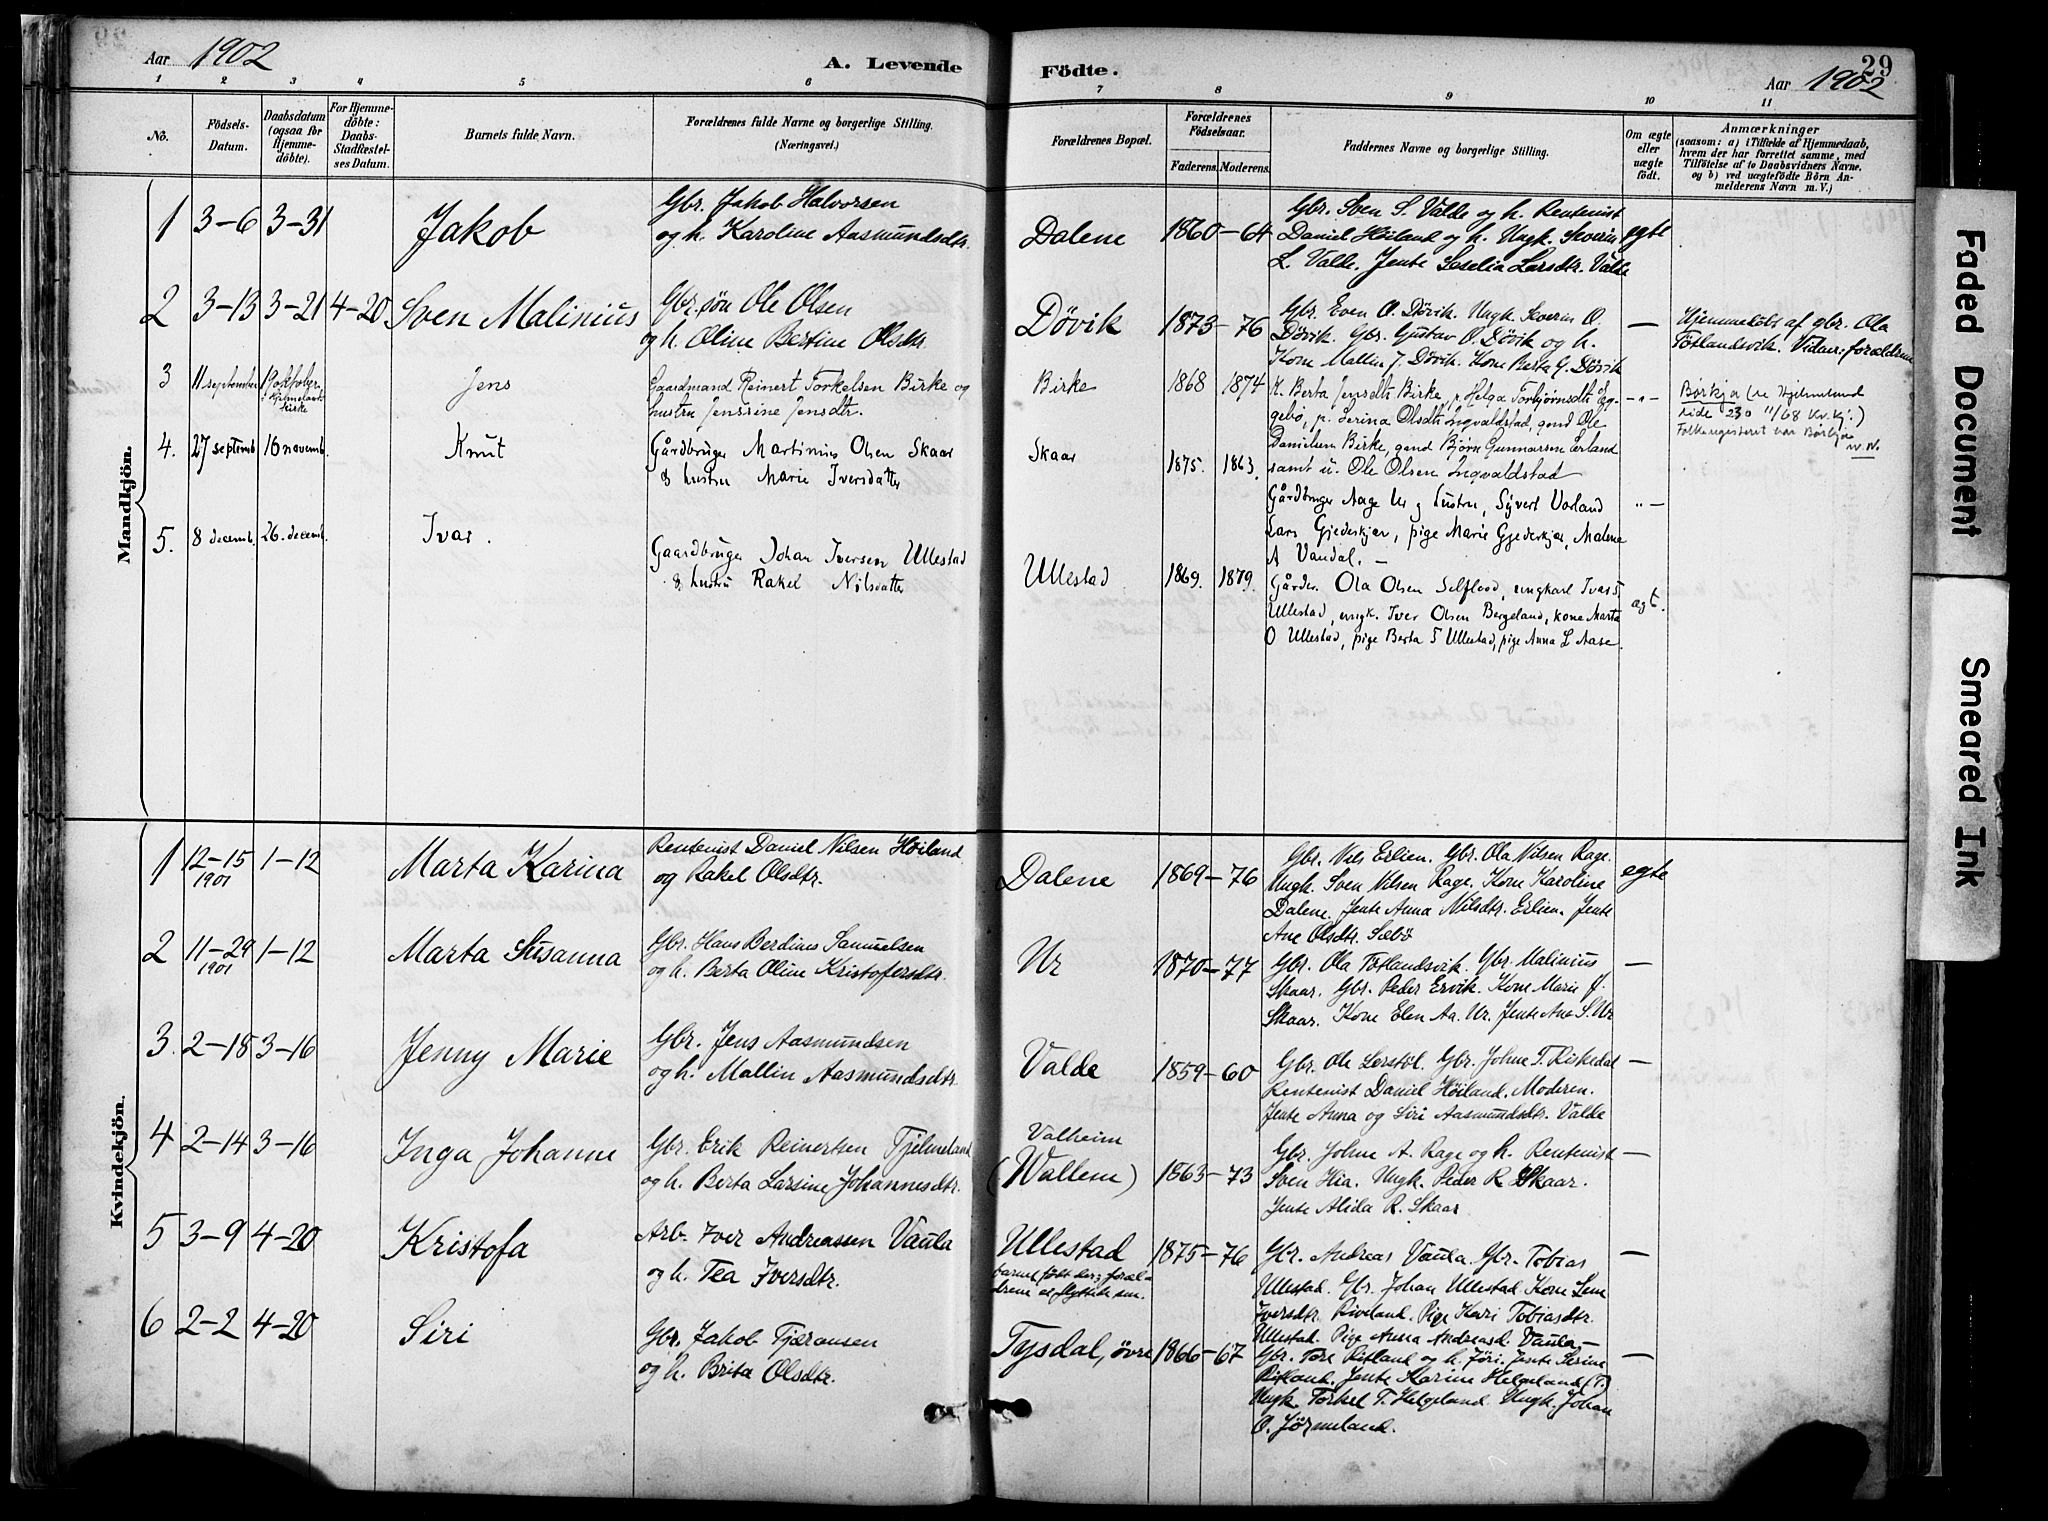 Aar 1902
A. Levende
Födte.
29
Aar 1902
1 2 3 4 5 6 7 8 9 10 11
No.
Födsels-
Datum.
Daabsdatum
(ogsaa for
Hjemme-
döbte).
For Hjemme-
döbte:
Daabs-
Stadfæstel-
ses Datum.
Barnets fulde Navn.
Forældrenes fulde Navne og borgerlige Stilling.
(Næringsvei.)
Forældrenes Bopæl.
Forældrenes
Födselsaar.
Faderens. Moderens.
Faddernes Navne og borgerlige Stilling.
Om ægte
eller
uægte
födt.
Anmærkninger
(saasom: a) i Tilfælde af Hjemmedaab,
hvem der har forrettet samme, med
Tilföielse af to Daabsvidners Navne,
og b) ved uægtefödte Börn An-
melderens Navn m. V.)
Mandkjön.
1 3-6 3-31 Jakob
Gbr. Jakob Halvorsen
og h. Karoline Aasmundsdtr.
Dalene 1860-64
Gbr. Sven S. Valde og h. Rentenist
Daniel Höiland og h. Ungk. Severin
L. Valde. Jente Larsdtr. Valde
egte
2 3-13 3-21 4-20 Sven Malinius
Gbr.sön Ole Olsen
og h. Oline Bertine Olsdtr.
Dövik 1873-76
Gbr. Even O. Dövik. Ungk. Severin O.
Dövik. Gbr. Gustav O. Dövik og h.
Kone Mallin J. Dövik. Kone Berta G. Dövik
—
Hjemmedöbt af gbr. Ola
Tötlandsvik. Vidner: forældrene
3 11 september 19 oktober i Hjelmeland kirke Jens
Gaardmand Reinert Torkelsen Birke og
hustru Jenssine Jensdtr.
Birke 1868 1874
K. Berta Jensdtr Birke, p. Helga Torbjørnsdtr Eg-
gebø, p. Serina Olsdtr Ingvaldstad, gmd Ole
Danielsen Birke, gmd Bjørn Gunnarsen
samt u. Ole Olsen Ingvaldstad
—"—
Børkja (se Hjelmeland
side 230 11/68 Kv.kj.)
Folkeregisteret har
4. 27 septemb. 16 novemb. Knut
Gårdbruger Martinius Olsen Skaar
& hustru Marie Iversdatter
Skaar 1875. 1863.
Gårdbruger Aage Ur og hustru, Sjvert Vorland
Lars Gjedeskjær, pige Marie Gjedeskjær, Malene
A Vandal. —
"—
5. 8 decemb. 26. decemb. Ivar.
Gaardbruger Johan Iversen Ullestad
& hustru Rakel Nilsdatter
Ullestad 1869. 1879.
Gårdbr. Ola Olsen, ungkarl Ivar T
Ullestad, ungk. Iver Olsen Bergeland, kone Marta
O Ullestad, pige Berta T Ullestad, pige Anna L Aase.
ægt.
Kvindekjön.
1 12-15 1901 1-12 Marta Karina
Rentenist Daniel Nilsen Höiland
og Rakel Olsdtr.
Dalene 1869-76
Gbr. Nils Erlien. Gbr. Ola Nilsen Rage.
Ungk. Sven Nilsen Rage. Kone Karoline
Dalene. Jente Anna Nilsdtr. Erlien. Jente
Ane Olsdtr. Sæbö
egte
2 11-29 1901 1-12 Marta Susanna
Gbr. Hans Berdines Samuelsen
og h. Berta Oline Kristofersdtr.
Ur 1870-77
Gbr. Ola Tötlandsvik. Gbr. Malinius
Skaar. Gbr. Peder Ervik. Kone Marie J.
Skaar. Kone Elen Aa. Ur. Jente Ane S. Ur
—
3. 2-18 3-16 Jenny Marie
Gbr. Jens Aasmundsen
og h. Mallin Aasmundsdtr.
Valde 1859-60
Gbr. Ole Lerstöl. Gbr. Johne T. Kiskedal
Rentenist Daniel Höiland. Moderen.
Jente Anna og Siri Aasmundsdtr. Valde
—
4 2-14 3-16 Inga Johanne
Gbr. Erik Reinertsen Fjelmeland
og h. Berta Larsine Johannesdtr.
Valheim
(Wallem) 1863-73
Gbr. Johne A. Rage og h. Rentenist
Sven Hia. Ungk. Peder R Skaar.
Jente Alida R. Skaar
—
5 3-9 4-20 Kristofa
Arb. Iver Andreassen Vaula
og h. Tea Iversdtr.
Ullestad 1875-76
barnet födt der; foræl-
drene
Gbr. Andreas Vaula. Gbr. Tobias
Ullestad. Gbr. Johan Ullestad. Kone Lene
Iversdtr. Riveland. Pige Kari Tobiasdtr.
Ullestad. Pige Anna Andreasd. Vaula —
—
6 2-2 4-20 Siri
Gbr. Jakob Tjæransen
og h. Brita Olsdtr.
Tysdal, övre 1866-67
Gbr. Tore Ritland og h. Jöri. Jente Serine
Ritland. Jente Karine Helgeland (T.)
Ungk. Torkel T. Helgeland. Ungk. Johan
O. Jörmeland.
—
Faded Document
Smeared Ink